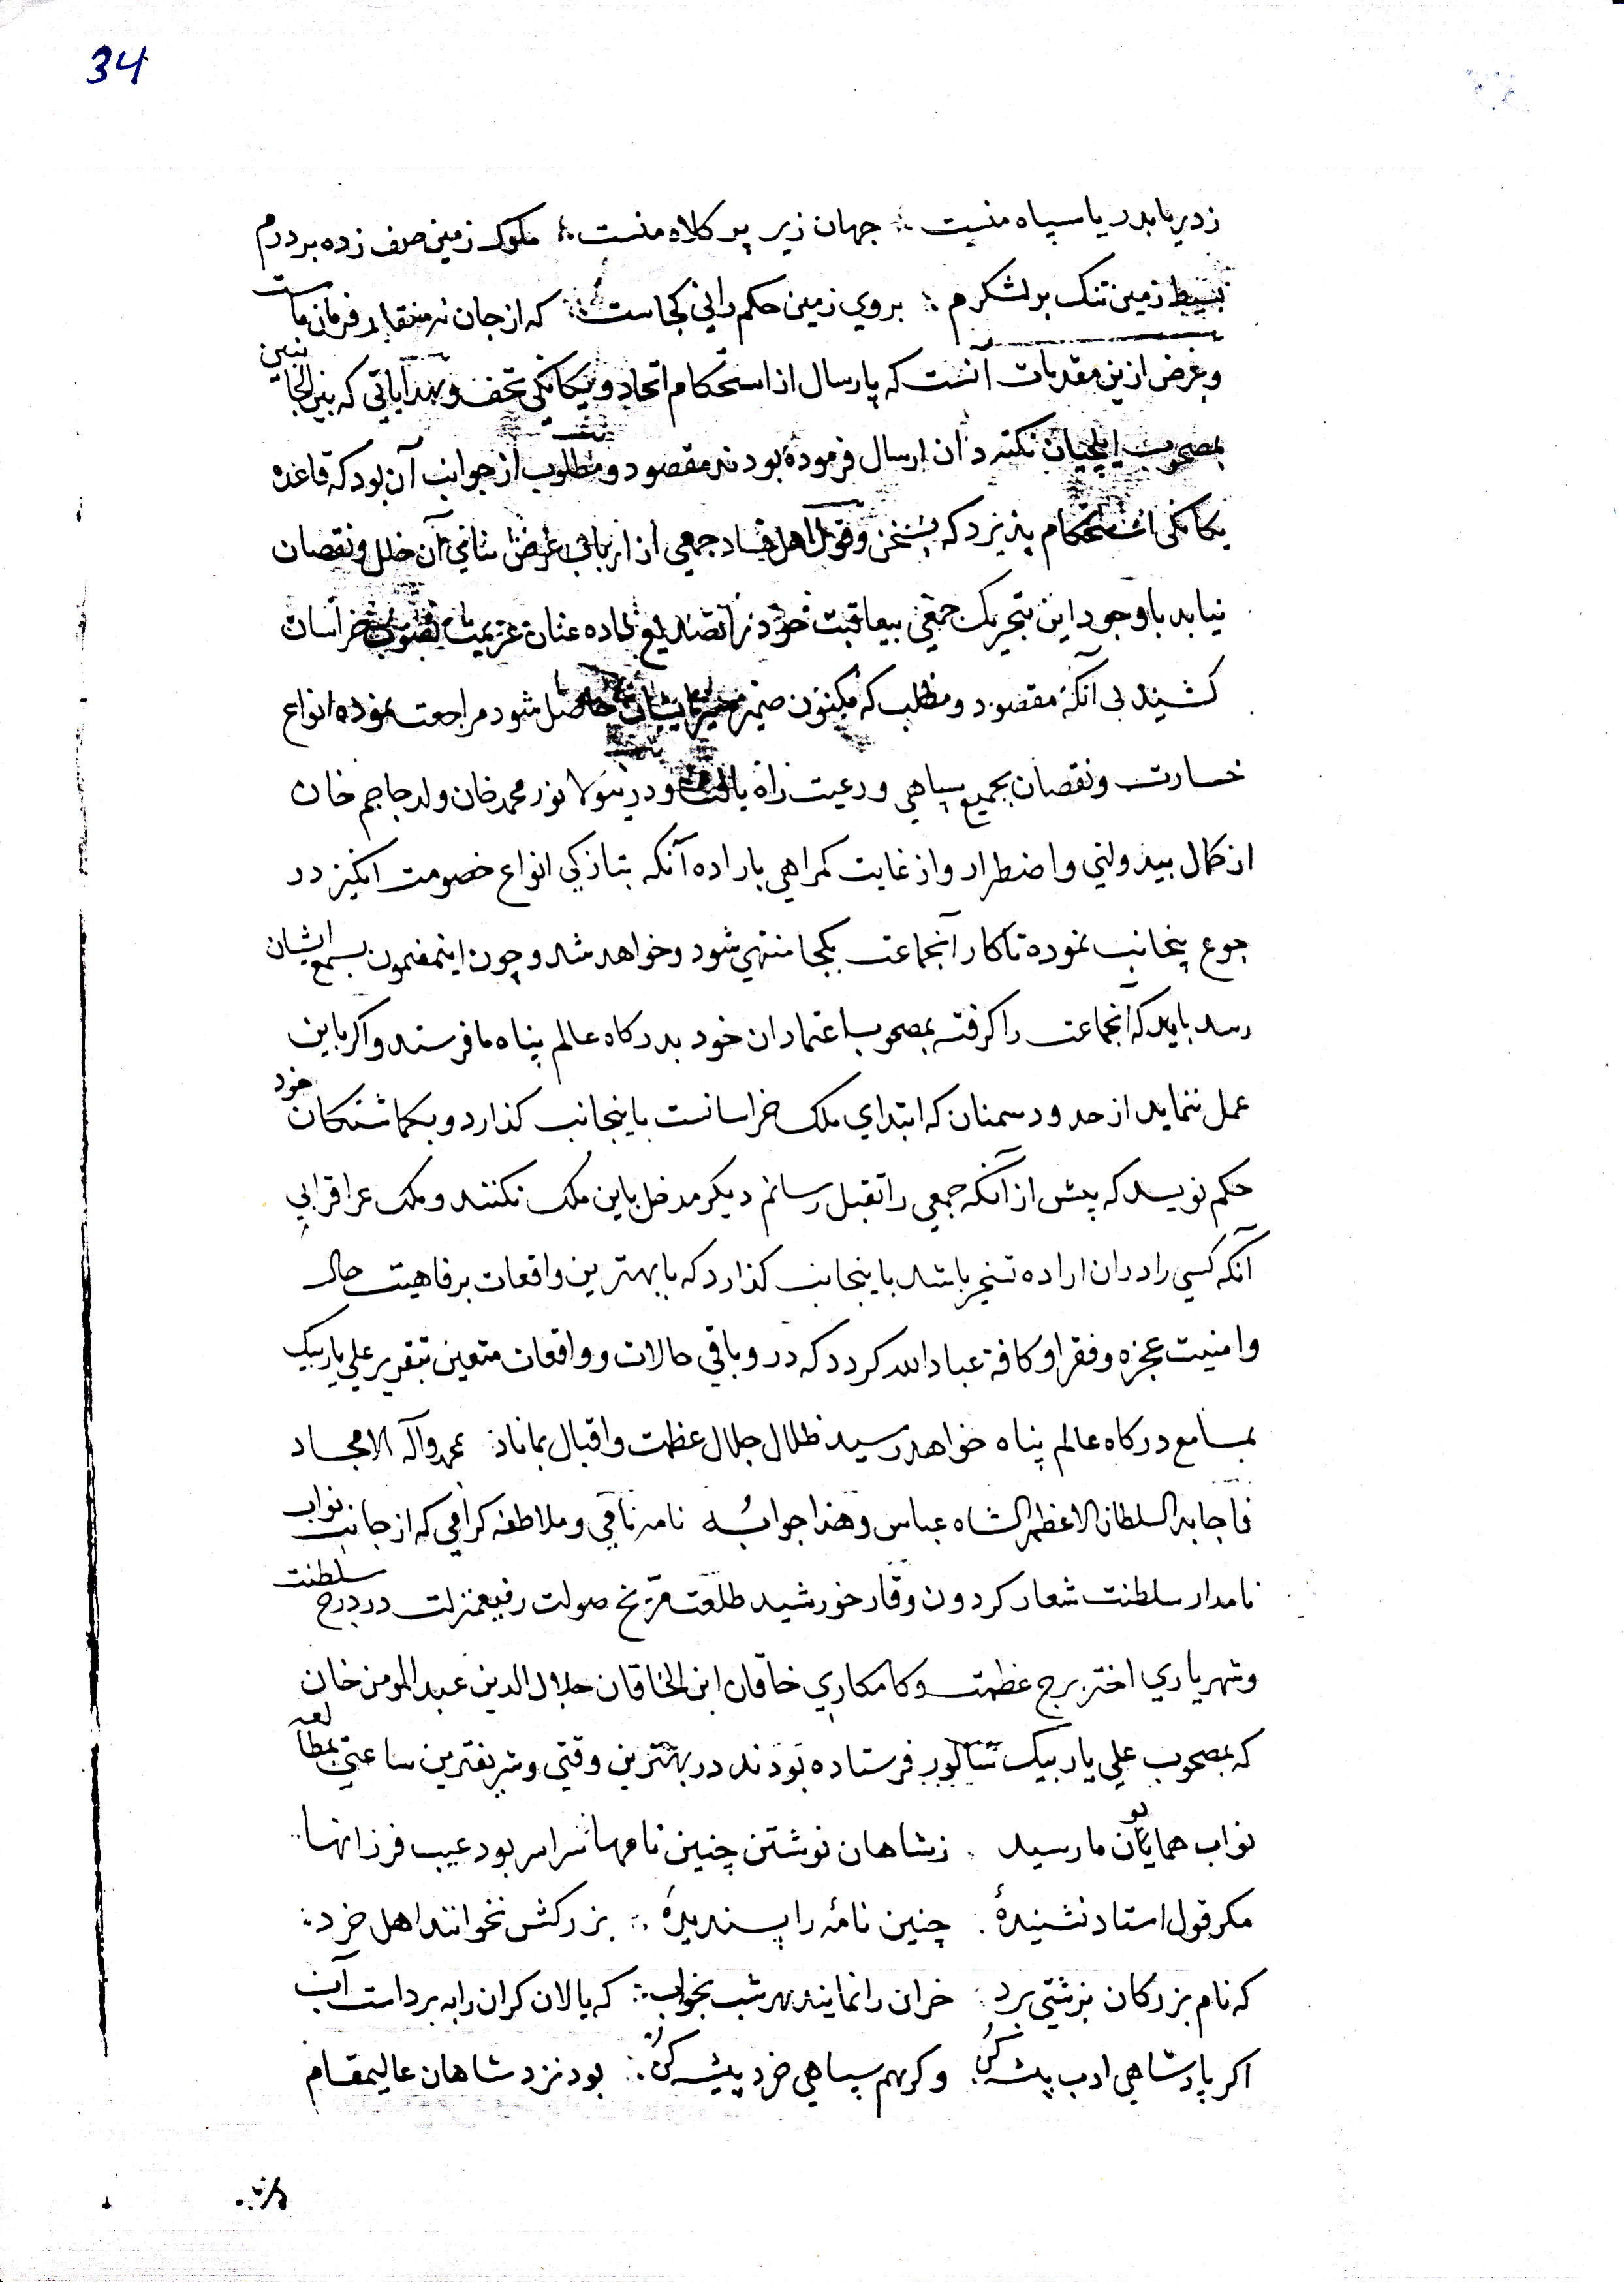 34
زدریا بدریا سپاه منست ∴ جهان زیر پر کلاه منست ∴ ملوک زمین صف زده بر درم
بسیط زمین تنک بر لشکرم ∴ بروی زمین حکم رانی کجاست ∴ که از جان نه منقاد فرمان ماست
و غرض ازین مقدمات آنست که پارسال از استحکام اتحاد و یکانکی تحف و هدایاتی که بین الجانبین
بمصحوب ایلچیان نکته دان ارسال فرموده بودند مقصود و مطلوب از جوانب آن بود که قاعده
یکانکی استحکام پذیرد که بسخن و قول اهل فساد جمعی از ارباب غرض منافی آن خلل و نقصان
نیابد باوجود این بتحریک جمعی بیعاقبت خود را تصدیع داده عنان عزیمت بصوب خراسان
کشیند بی آنکه مقصود و مطلب که مکنون ضمیر ایشان حاصل شود مراجعت نموده انواع
خسارت و نقصان بجمیع سپاهی و رعیت راه یافت و درینولا نور محمد خان ولد حاجم خان
از کمال بیدولتی و اضطرار و از غایت کمراهی باراده آنکه بتازکی انواع خصومت انکیزد ر
جوع پنجانب نموده تا کار آنجماعت بکجا منتهی شود و خواهد شد و چون اینمضمون بسمع ایشان
رسد باید که آنجماعت را کرفته بمصحوب اعتمادان خود بدرکاه عالم پناه ما فرستد و اکر باین
عمل ننماید از حدود سمنان که ابتدای ملک خراسانست باینجانب کذارد و بکماشتکان خود
حکم نویسد که پیش از آنکه جمعی را بقتل رسانم دیکر مدخل باین ملک نکنند و ملک عراق را بی
آنکه کسی را دران اراده تسخیر باشد باینجانب کذارد که با بهترین واقعات برفاهیت حال
و امنیت عجزه و فقرا و کافه عباد الله کردد که در و باقی حالات و واقعات متعین بتقریر علی یار بیک
بمسامع درکاه عالم پناه خواهد رسید ظلال جلال عظمت و اقبال بماناد بمحمد و آله الامجاد
فاجابه السلطان الاعظم الشاه عباس و هذا جوابُه نامه نامی و ملاطفه کرامی که از جانب نواب
نامدار سلطنت شعار کردون وقار خورشید طلعت مرّیخ صولت رفیعمنزلت در درج سلطنت
و شهریاری اختر برج عظمت و کامکاری خاقان ابن الخاقان جلال الدین عبد المومن خان
که بمصحوب علی یار بیک فرستاده بودند در بهترین وقتی و شریفترین ساعتی بمطالعه
نواب همایون ما رسید ∴ زشاهان نوشتن چنین نامها سراسر بود عیب فرزانها
مکر قول استاد نشنیدهٔ ∴ چنین نامهٔ را پسندیدهٔ ∴ بزرکش نخوانند اهل خرد ∴
که نام بزرکان بزشتی برد ∴ خران را نمایند هر شب بخواب ∴ که پالان کران را به برداست آب
اکر پادشاهی ادب پیشه کن ∴ وکر هم سپاهی خرد پیشه کن ∴ بود نزد شاهان عالیمقام